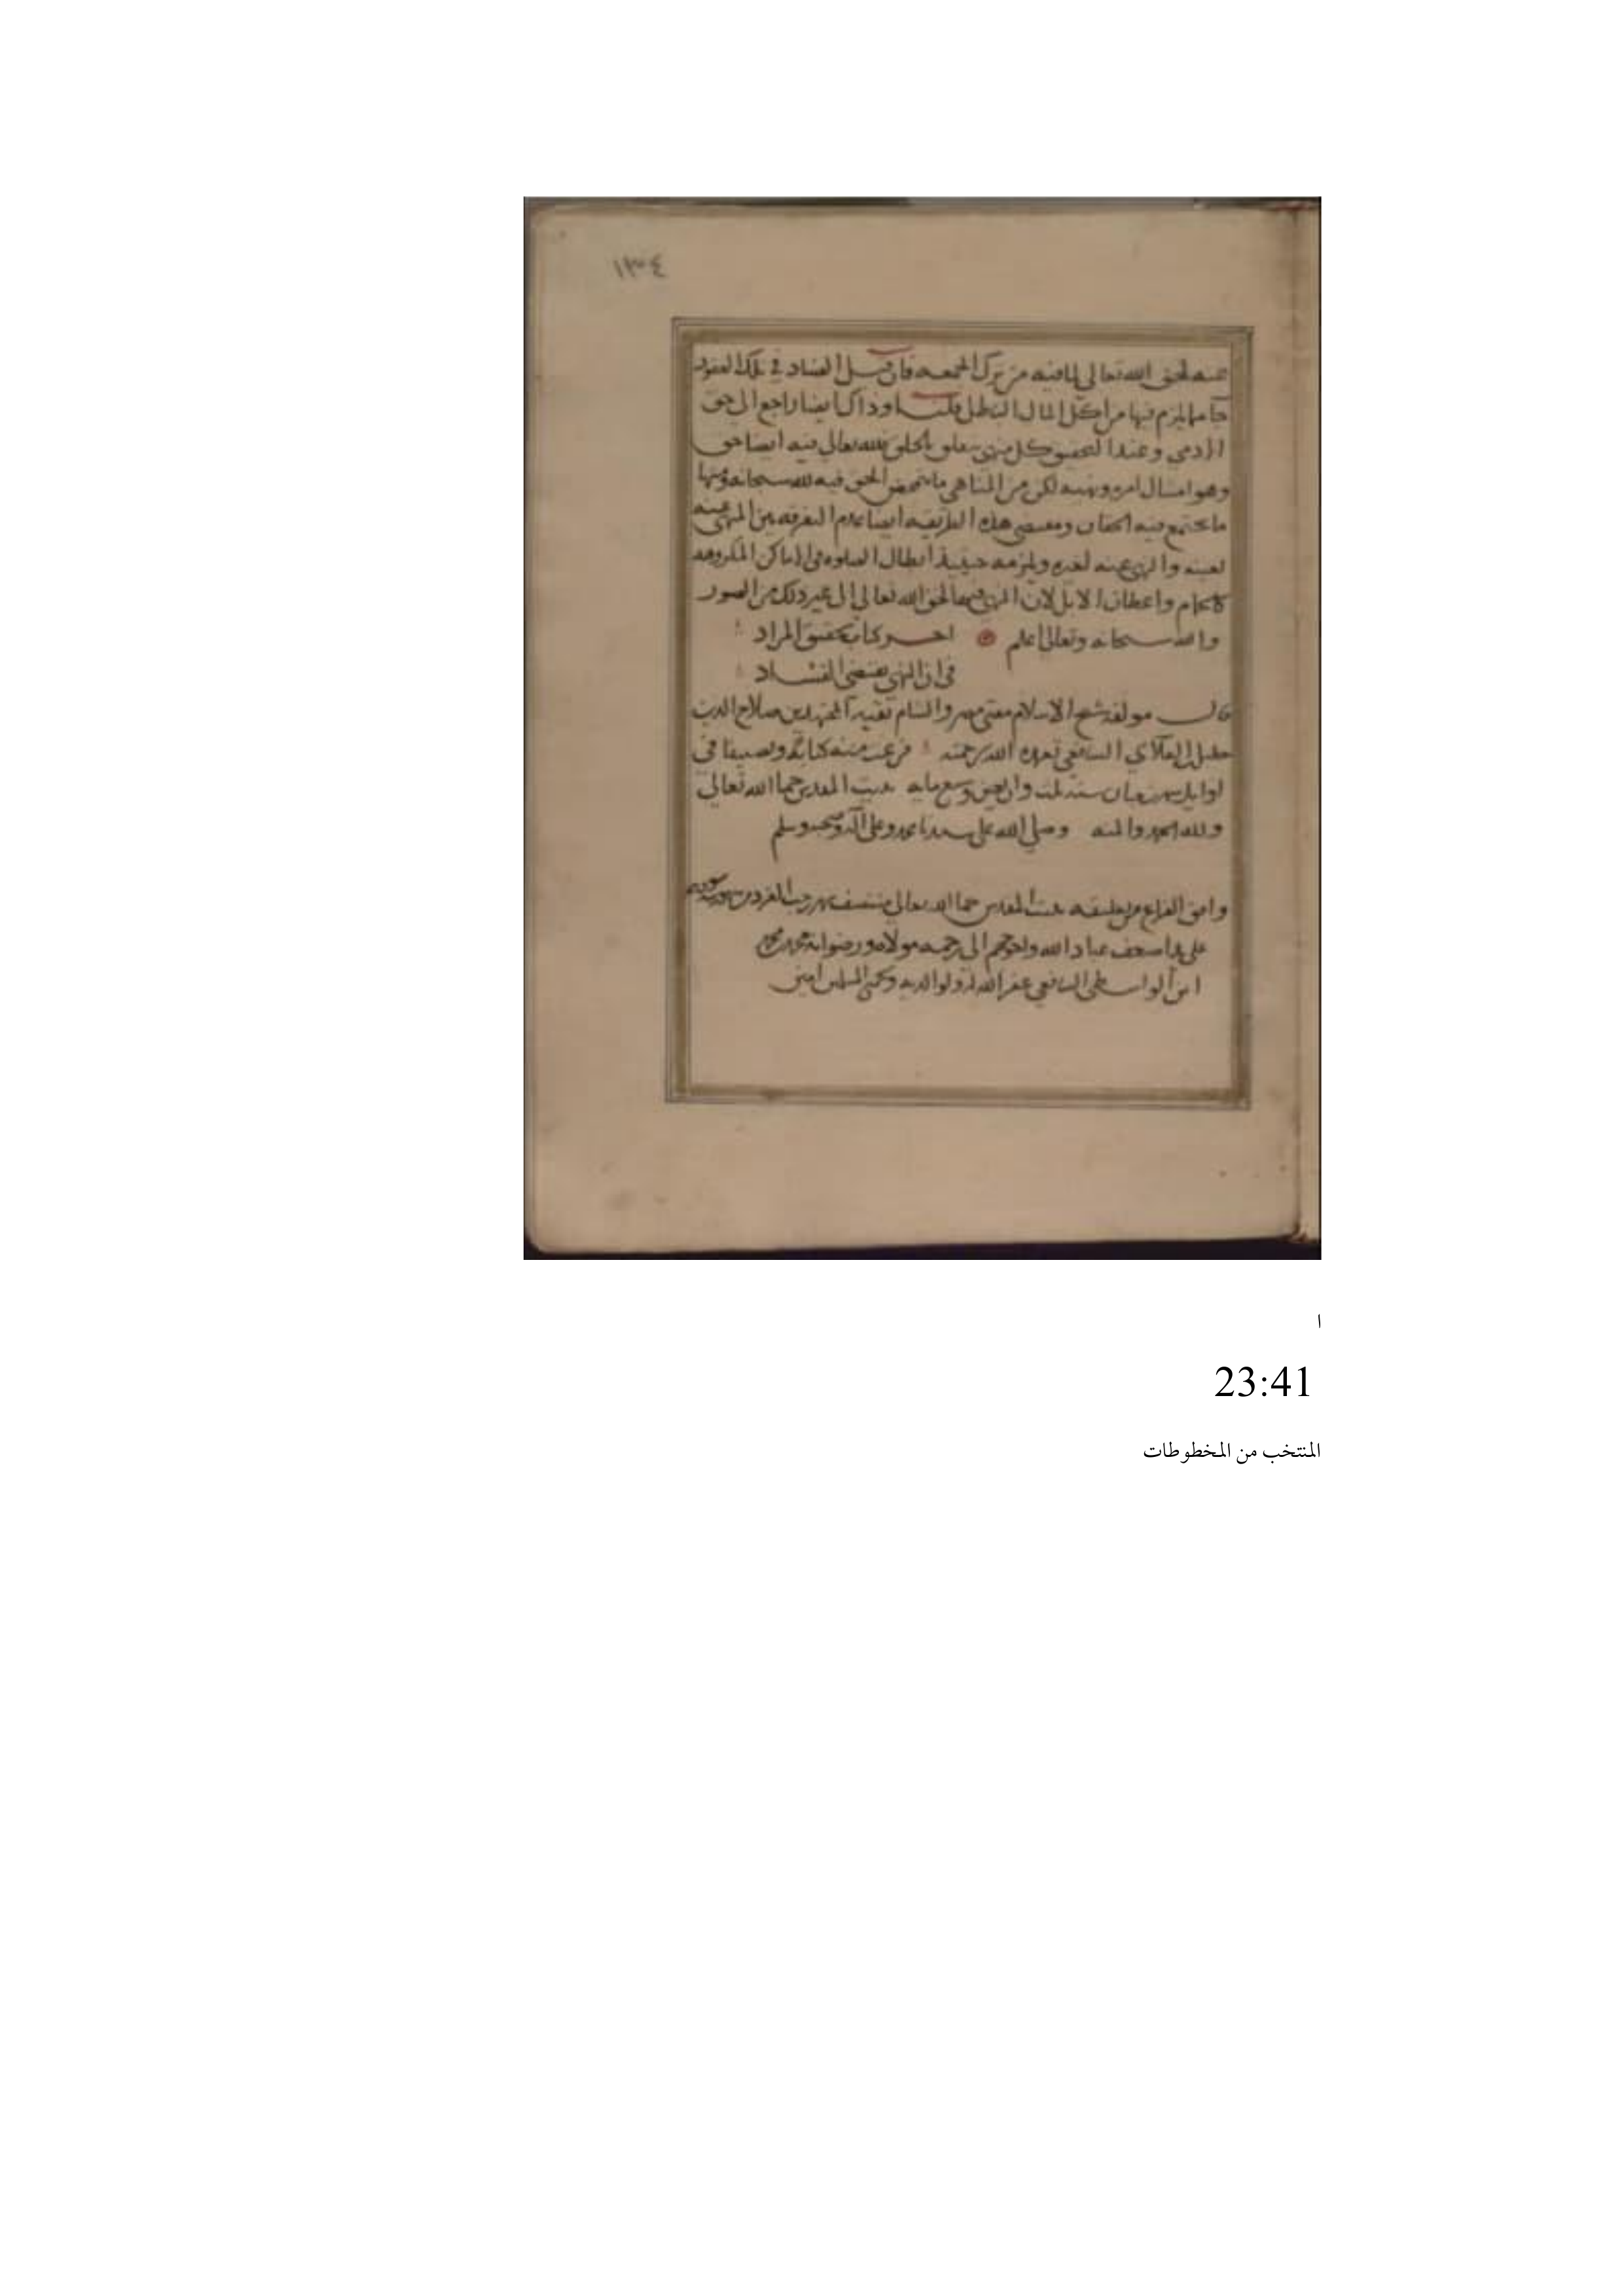 ١٣٤
عنه لحق الله تعالى لما فيه من ترك الجمعه فان قيل الفساد في تلك العقود
جا مما يلزم فيها من اكل المال الباطل قلنا وذاك ايضا راجع الى حق
الادمى وعند التحقيق كل منهى يتعلق بالخلق لله تعالى فيه ايضا حق
وهو امتثال امره ونهيه لكن من المناهى ما يتمحض الحق فيه لله سبحانه ومنها
ما يجتمع فيه الحقان ومقتضى هذه الطريقه ايضا عدم التفرقه بين المنهى عنه
لعينه والمنهى عنه لغيره ويلزمه حينئذ ابطال الصلوه فى الاماكن المكروهه
كالحمام واعطان الابل لان النهى فيها لحق الله تعالى الى غير ذلك من الصور
والله سبحانه وتعالى اعلم اخر كتاب تحقيق المراد
فى ان النهى يقتضى الفساد
قال مولفه شيخ الاسلام مفتى مصر والشام بقيه المجتهدين صلاح الدين
خليل العلآي الشافعى تغمده الله برحمته فرغت منه كتابة وتصنيفا فى
اوايل شهر شعبان سنه ثلث واربعين وسبع مايه ببيت المقدس حماه الله تعالى
ولله الحمد والمنه وصلى الله على سيدنا محمد وعلى آله وصحبه وسلم
وافق الفراغ من تعليقه ببيت المقدس حماه الله تعالى منتصف شهر رجب الفرد من شهور سنة
على يد اضعف عباد الله واحوجهم الى رحمه مولاه ورضوانه محمد بن محمد
ابن الواسطى الشافعى غفر الله له ولوالديه ولجميع المسلمين امين
ا
23:41
المنتخب من المخطوطات